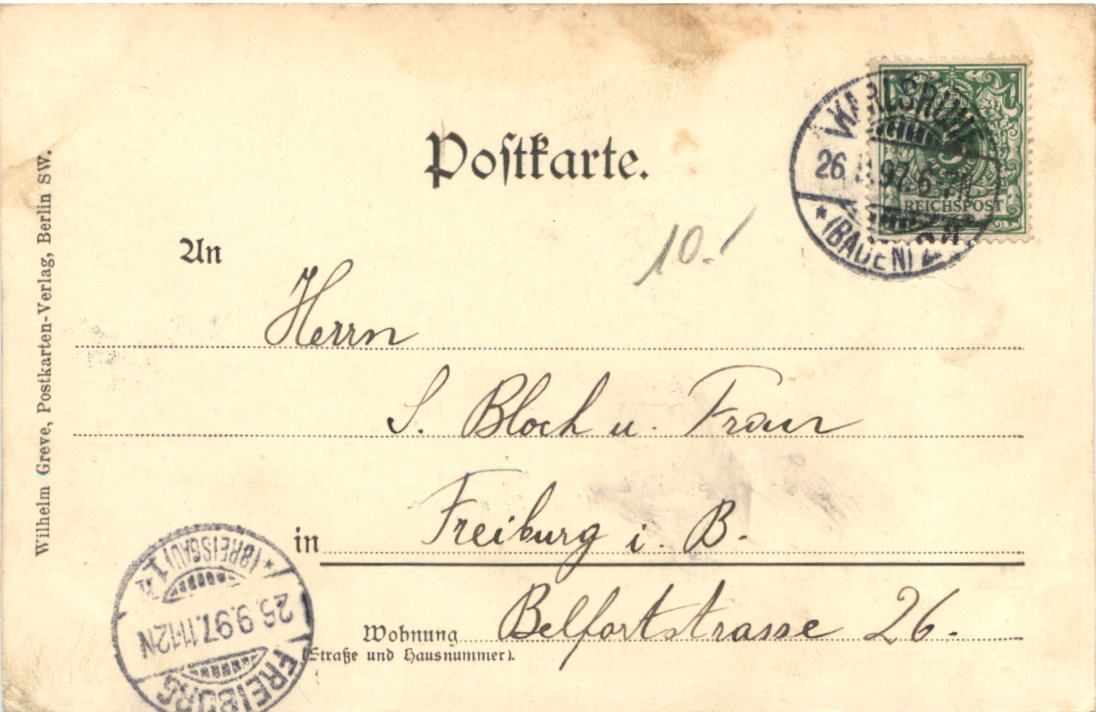 Postkarte.
KARLSRUHE
26. 97. 6-7N
(BADEN) 2
REICHSPOST
5
An
10.-
Herrn
S. Bloch u. Frau
in Freiburg i. B.
Wohnung Belfortstrasse 26.
(Straße und Hausnummer).
Wilhelm Greve, Postkarten-Verlag, Berlin SW.
FREIBURG
26.9.97.11-12N
(BREISGAU) 1